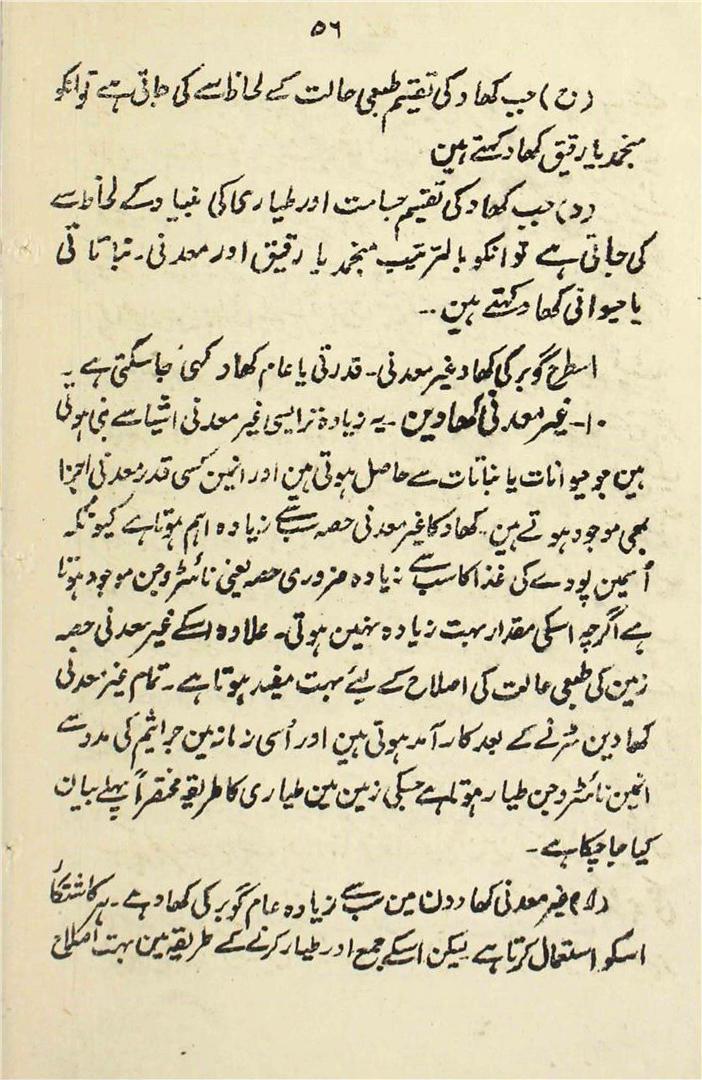 ۵۶
(ج) جب کھاد کی تقسیم طبعی حالت کے لحاظ سے کی جاتی ہے تو انکو
منجمد یا رقیق کھاد کہتے ہین
(د) جب کھاد کی تقسیم جسامت اور طیاری کی بنیاد کے لحاظ سے
کی جاتی ہے تو انکو بالترتیب منجمد یا رقیق اور معدنی۔ نباتاتی
یا حیوانی کھاد کہتے ہین ۔۔
اسطرح گوبر کی کھاد غیر معدنی۔ قدرتی یا عام کھاد کہی جا سکتی ہے ۔
۱۰۔ غیر معدنی کھادین ۔ یہ زیادہ تر ایسی غیر معدنی اشیا سے بنی ہوئی
ہین جو حیوانات یا نباتات سے حاصل ہوتی ہین اور انمین کسی قدر معدنی اجزا
بھی موجود ہوتے ہین۔ کھاد کا غیر معدنی حصہ سب سے زیادہ اہم ہوتا ہے کیونکہ
اُسمین پودے کی غذا کا سب سے زیادہ ضروری حصہ یعنی نائٹروجن موجود ہوتا
ہے اگرچہ اسکی مقدار بہت زیادہ نہین ہوتی۔ علاوہ اسکے غیر معدنی حصہ
زمین کی طبعی حالت کی اصلاح کے لیئے بہت مفید ہوتا ہے۔ تمام غیر معدنی
کھادین سڑنے کے بعد کارآمد ہوتی ہین اور اُسی زمانہ مین جراثیم کی مدد سے
انمین نائٹروجن طیار ہوتا ہے جسکی زمین مین طیاری کا طریقہ مختصراً پہلے بیان
کیا جا چکا ہے۔
غیر معدنی کھادون مین سب سے زیادہ عام گوبر کی کھاد ہے۔ ہر کاشتکار
اسکو استعمال کرتا ہے لیکن اسکے جمع اور طیار کرنے کے طریقہ مین بہت اصلاح